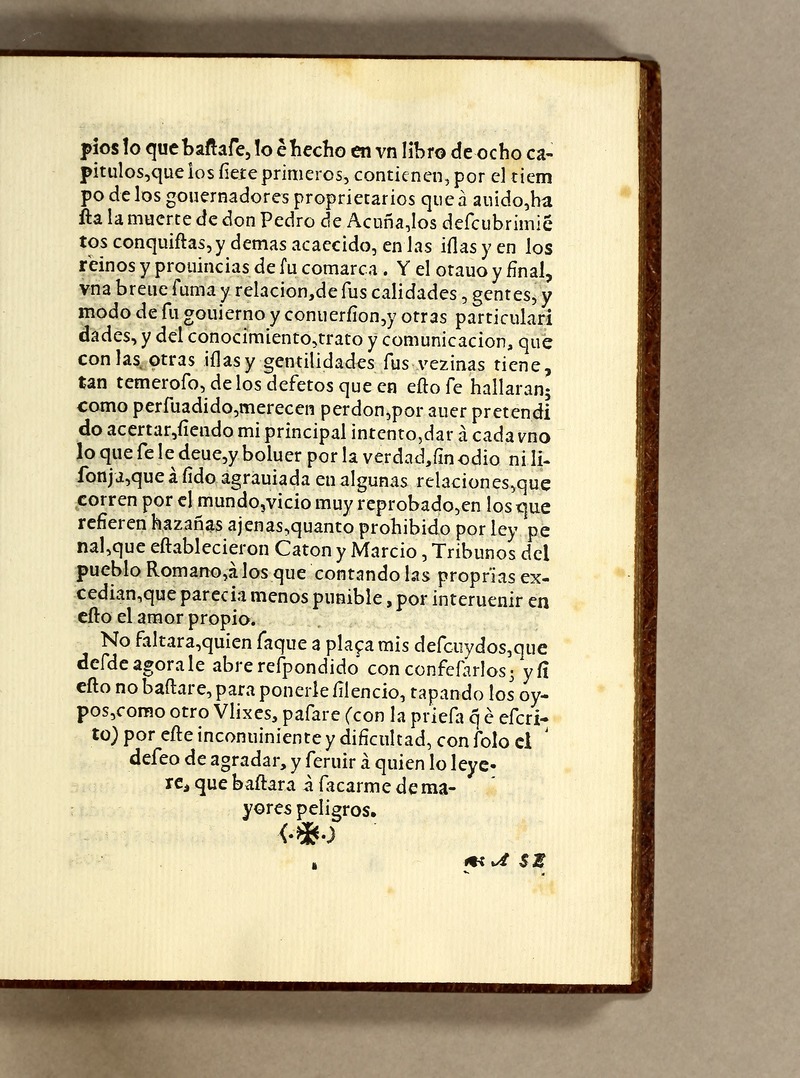 pios lo que baſtaſe, lo è hecho en vn libro de ocho ca-
pitulos,que los ſiete primeros, contienen, por el tiem
po de los gouernadores proprietarios que à auido,ha
ſta la muerte de don Pedro de Acuña,los deſcubrimiē
tos conquiſtas, y demas acaecido, en las iſlas y en los
reinos y prouincias de ſu comarca . Y el otauo y final,
vna breue ſuma y relacion,de ſus calidades , gentes, y
modo de ſu gouierno y conuerſion,y otras particulari
dades, y del conocimiento,trato y comunicacion, que
con las otras iſlas y gentilidades ſus vezinas tiene,
tan temeroſo, de los defetos que en eſto ſe hallaran;
como perſuadido,merecen perdon,por auer pretendi
do acertar,ſiendo mi principal intento,dar à cada vno
lo que ſe le deue,y boluer por la verdad,ſin odio ni li-
ſonja,que à ſido agrauiada en algunas relaciones,que
corren por el mundo,vicio muy reprobado,en los que
refieren hazañas ajenas,quanto prohibido por ley pe
nal,que eſtablecieron Caton y Marcio , Tribunos del
pueblo Romano,à los que contando las proprias ex-
cedian,que parecia menos punible , por interuenir en
eſto el amor propio.
No faltara,quien ſaque a plaça mis deſcuydos,que
deſde agora le abre reſpondido con confeſarlos; y ſi
eſto no baſtare, para ponerle ſilencio, tapando los oy-
pos,como otro Vlixes, paſare (con la prieſa q̃ è eſcri-
to) por eſte inconuiniente y dificultad, con ſolo el
deſeo de agradar, y ſeruir à quien lo leye-
re, que baſtara à ſacarme de ma-
yores peligros.
A SE